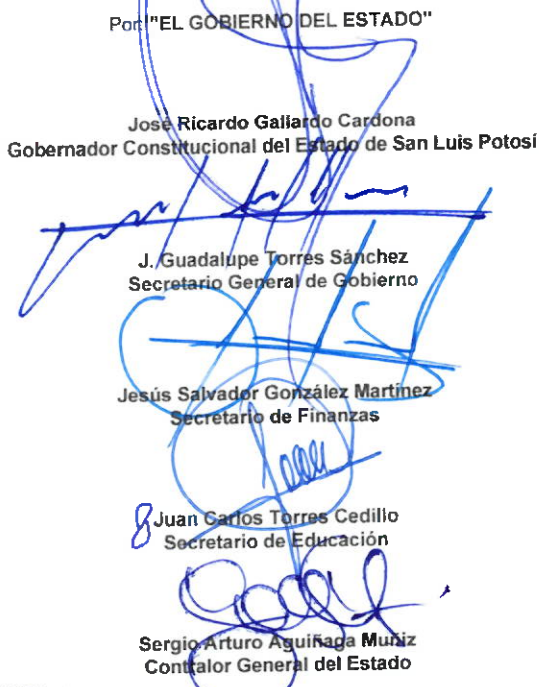 Por "EL GOBIERNO DEL ESTADO"
José Ricardo Gallardo Cardona
Gobernador Constitucional del Estado de San Luis Potosí
J. Guadalupe Torres Sánchez
Secretario General de Gobierno
Jesús Salvador González Martínez
Secretario de Finanzas
Juan Carlos Torres Cedillo
Secretario de Educación
Sergio Arturo Aguiñaga Muñiz
Contralor General del Estado